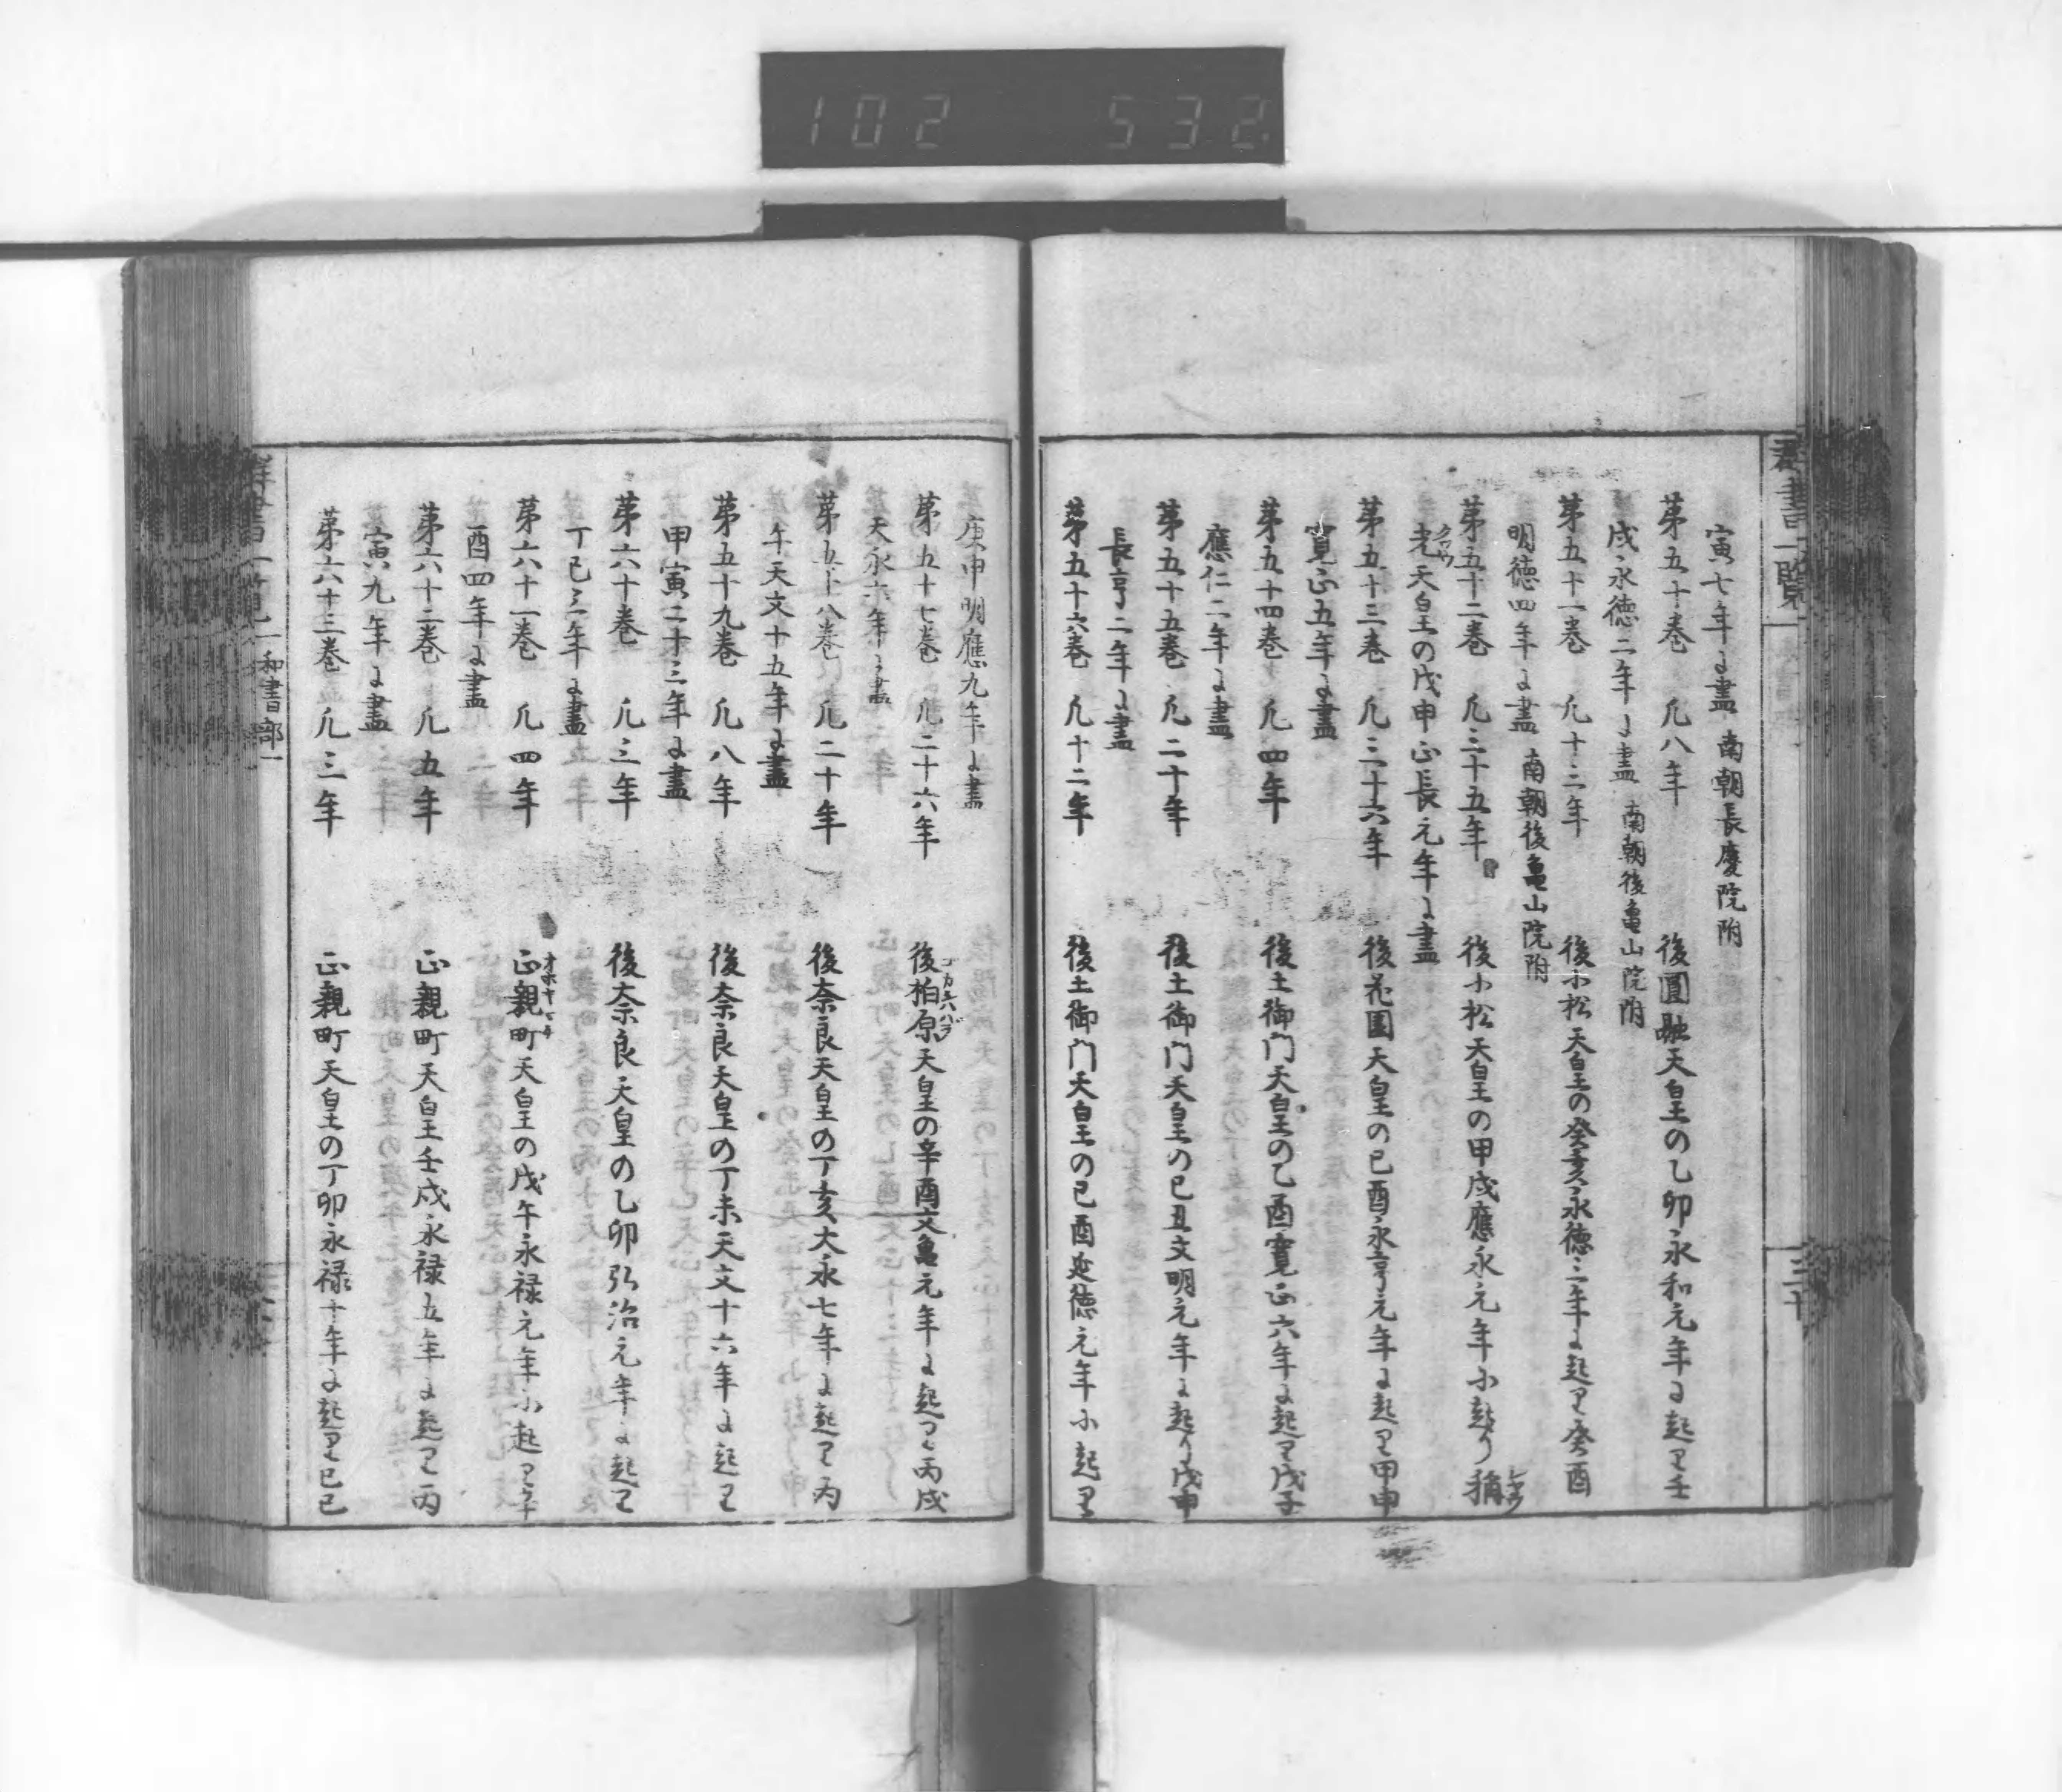 102 532
群書一覧
三十
寅七年ニ盡 南朝長慶院附
第五十巻 凡八年 後圓融天皇の乙卯永和元年に起り壬
戌永徳二年に盡 南朝後亀山院附
第五十一巻 凡十三年 後小松天皇の癸亥永徳三年に起り癸酉
明徳四年に盡 南朝後亀山院附
第五十二巻 凡三十五年 後小松天皇の甲戌應永元年に起り稱
光天皇の戊申正長元年に盡
第五十三巻 凡三十六年 後花園天皇の己酉永享元年に起り甲申
寛正五年に盡
第五十四巻 凡四年 後土御門天皇の乙酉寛正六年に起り戊子
應仁二年に盡
第五十五巻 凡二十年 後土御門天皇の己丑文明元年に起り戊申
長享二年に盡
第五十六巻 凡十二年 後土御門天皇の己酉延徳元年に起り
庚申明應九年に盡
第五十七巻 凡二十六年 後柏原天皇の辛酉文亀元年に起り丙戌
大永六年に盡
第五十八巻 凡二十年 後奈良天皇の丁亥大永七年に起り丙
午天文十五年に盡
第五十九巻 凡八年 後奈良天皇の丁未天文十六年に起り
甲寅二十三年に盡
第六十巻 凡三年 後奈良天皇の乙卯弘治元年に起り
丁巳三年に盡
第六十一巻 凡四年 正親町天皇の戊午永禄元年に起り辛
酉四年に盡
第六十二巻 凡五年 正親町天皇壬戌永禄五年に起り丙
寅九年に盡
第六十三巻 凡三年 正親町天皇の丁卯永禄十年に起り己巳
群書一覧
和書部一